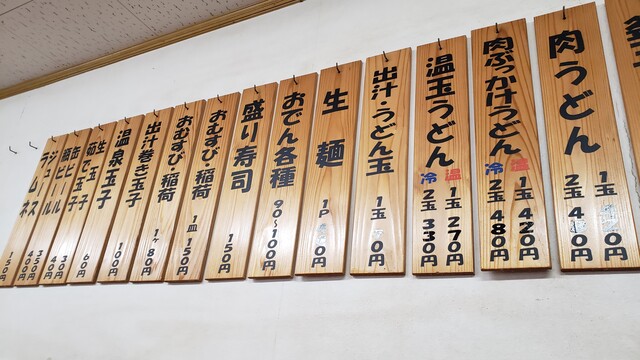 肉うどん
1玉 0円
2玉 4 0円
肉ぶっかけうどん
温 1玉 420円
冷 2玉 480円
温玉うどん
温 1玉 270円
冷 2玉 330円
出汁・うどん玉
1玉 0円
生麺
1P 0円
おでん各種
90〜100円
盛り寿司
150円
おむすび・稲荷
1皿 150円
おむすび・稲荷
1ヶ 80円
出汁巻き玉子
温泉玉子
100円
生玉子
茹で玉子
60円
缶ビール
瓶ビール
ジュース
ラムネ
150円